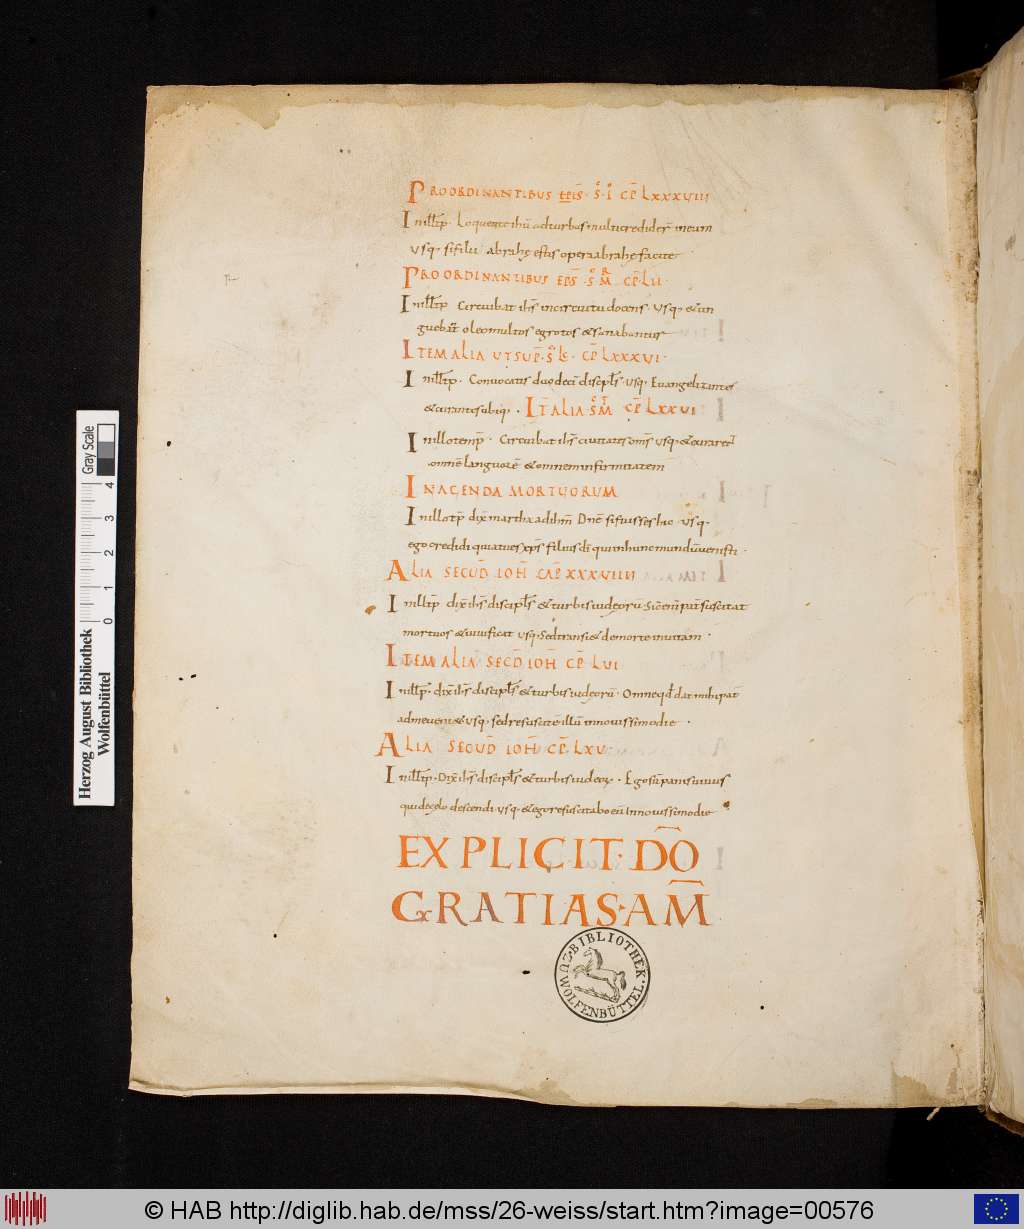 PRO ORDINANTIBUS EPIS · S · I CP LXXXVIII
In ill tp · Loquente ihu ad turbas multi crediderˉ in eum
usq · si filii abrahę estis opera abrahę facite
PRO ORDINANTIBUS EPS · S MR CP LII ·
In ill tp Circuibat ihs in circuitu docens · usq · & un
guebant oleo multos egrotos & sanabantur
ITEM ALIA UT SUP · S LC · CP LXXXVI ·
In ill tp · Convocatis duodeci discipl's usq · Evangelizantes
& curantes ubiq · IT ALIA S M CP LXXVI
In illo temp · Circuibat ihs civitates oms usq · & curaret
omne languore & omnem infirmitatem
IN AGENDA MORTUORUM
In illo tp dix martha ad ihm Dne si fuisses hic · usq ·
ego credidi quia tu es xps filius di qui in hunc mundu venisti ·
ALIA SECUD IOH CAP XXXVIIII
In ill tp dix ihs discipl's & turbis iudeoru Sic eni pat suscitat
mortuos & vivificat usq · Sed transi& de morte in vitam ·
ITEM ALIA SECD IOH CP LVI
In ill tp · dix ihs discipl's & turbis iudeoru · Omne qd dat mihi pat
ad me veni& usq · sed resuscite illu in novissimo die ·
ALIA SECUD IOH CP · LXV ·
In ill tp · Dix ihs discipl's & turbis iudeor · Ego su panis vivus
qui de celo descendi · usq · & ego resuscitabo eu In novissimo die
EXPLICIT · DO
GRATIAS · AM
BIBLIOTHEK ZU WOLFENBÜTTEL
Herzog August Bibliothek
Wolfenbüttel
0 1 2 3 4
Gray Scale
© HAB http://diglib.hab.de/mss/26-weiss/start.htm?image=00576